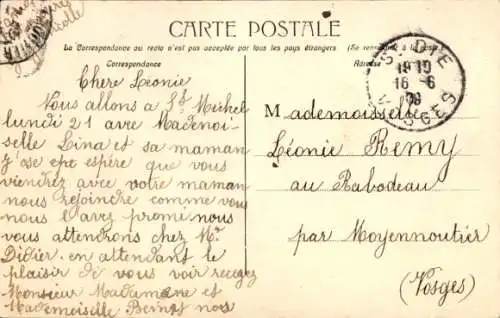 CARTE POSTALE
La Correspondance au recto n'est pas acceptée par tous les pays étrangers (Se renseigner à la poste)
Correspondance
Adresse
Chere Léonie
Nous allons a St Michel
lundi 21 avre Madenoi-
selle Lina et sa maman
j'ose epe espére que vous
viendrez avec votre maman
nous rejoindre comme vous
nous l'avez promi nous
vous attendrons chez Mr
Didier. en attendant le
plaisir de vous voir recevez
Monsieur Madamane et
Mademoiselle nos
Mademoisselle
Léonie Remy
au Rabodeau
par Moyennoutier
(Vosges)
19 10
16 - 6
09
VOSGES